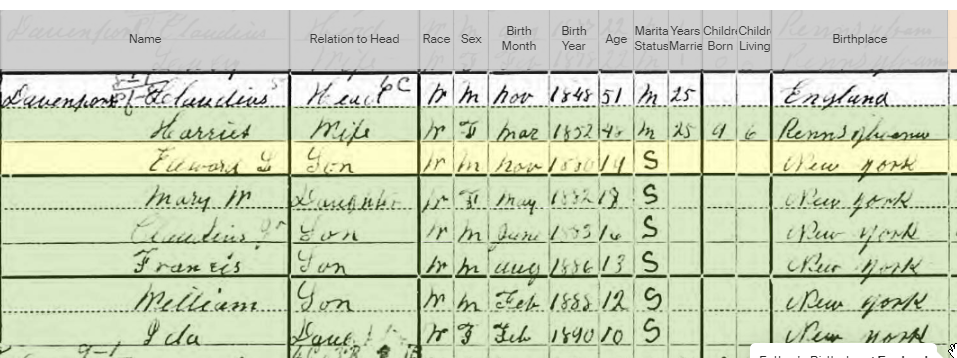 Name Relation to Head Race Sex Birth Month Birth Year Age Marital Status Years Marrie Childre Born Childr Living Birthplace
Davenport Claudius Sr Head W M Nov 1848 51 M 25 England
Harriet Wife W F Mar 1852 48 M 25 9 6 Pennsylvania
Edward G Son W M Nov 1880 19 S New York
Mary M Daughter W F May 1882 18 S New York
Claudius Jr Son W M June 16 S New York
Francis Son W M Aug 1886 13 S New York
William Son W M Feb 1888 12 S New York
Ida Daug W F Feb 1890 10 S New York